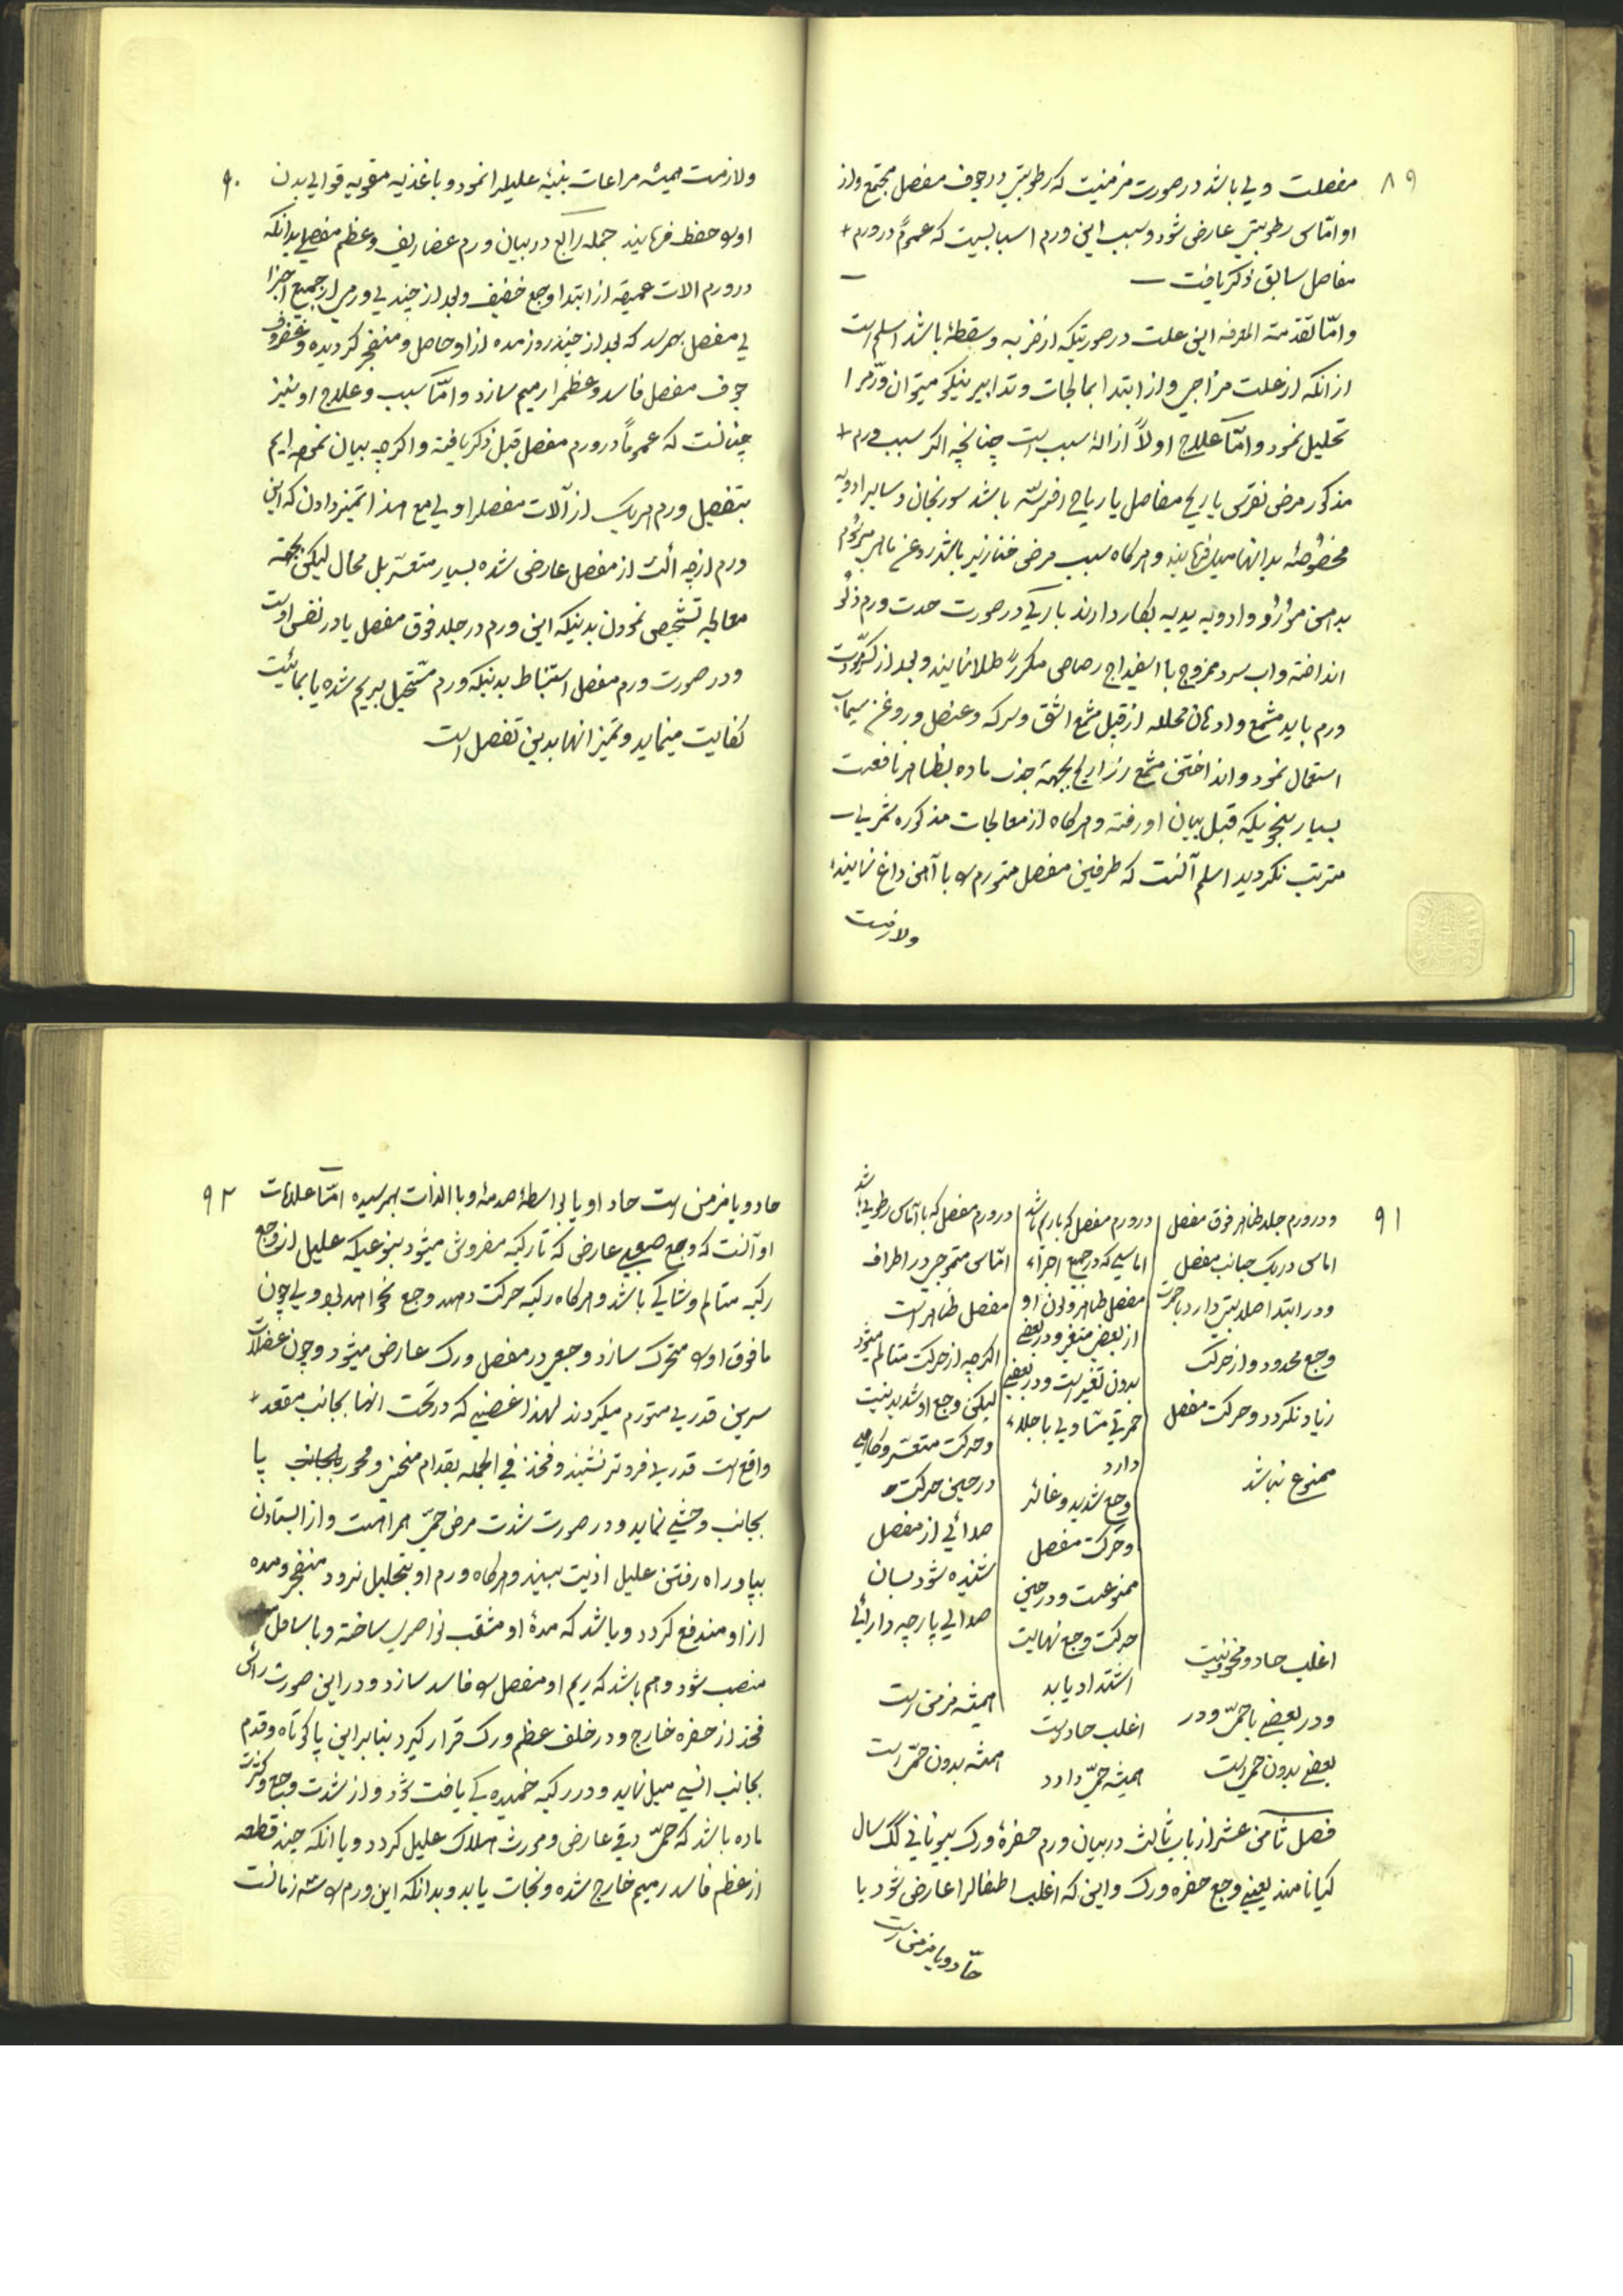 ۸۹
مفصلست ولی باشد در صورت مزمنیت که رطوبتی در جوف مفصل مجتمع و از
او اماس رطوبتی عارض شود و سبب این ورم اسبابیست که عموماً در ورم +
مفاصل سابق ذکر یافت —
و امّا تقدمة المعرفه این علت در صورتیکه از ضربه و سقطهٔ باشد اسلم است
از انکه از علت مزاجی و از ابتدا بمعالجات و تدابیر نیکو میتوان ورمرا
تحلیل نمود و امّا علاج اولاً ازالهٔ سبب است چنانچه اکر سبب ورم +
مذکور مرض نقرس یا ریح مفاصل یا ریاح افرسّه باشد سورنجان و سایر ادویه
مخصوصهٔ بدانها میل فرمایند و هرکاه سبب مرض خنازیر باشد روغن ماهی
بدا من مورو و ادویه یدیه بکار دارند باری در صورت حدت ورم ذلو
انداخته و اب سرد ممزوج با اسفیداج رصاصی مکرر طلا نمایند و بعد از
ورم باید مشمع و ادهان محلله از قبیل مشمع اشق و سرکه و عنصل و روغن سیماب
استعمال نمود و انداختن مشمع زراریح بجهة جذب ماده بظاهر نافعست
بسیار بنحویکه قبل بیان او رفته و هرکاه از معالجات مذکوره ثمری
مترتب نکردید اسلم آنست که طرفین مفصل متورم را با آهن داغ نمایند
ولازمست
۹۰
ولازمست همیشه مراعات بنیهٔ علیلرا نمود و باغذیه مقویه قوای بدن
اورا حفظ فرمایند جمله رابع در بیان ورم غضاریف و عظم مفصلی بدانکه
در ورم الات عمیقه از ابتدا وجع خفیف و بعد از چندی ورمی از جمیع اجزا
ی مفصل بهرسد که بعد از چند روز مده از او حاصل و منفجر کردیده و غضروف
جوف مفصل فاسد و عظمرا رمیم سازد و امّا سبب و علاج او نیز
چنانست که عموماً در ورم مفصل قبل ذکر یافته و اکرچه بیان نموده ایم
بتفصیل ورم هریک از آلات مفصلرا ولی مع هذا تمیز دادن که این
ورم از چه الت از مفصل عارض شده بسیار متعسّر بل محال لیکن بجهة
معالجه تشخیص نمودن بدینکه این ورم در جلد فوق مفصل یا در نفس اوست
و در صورت ورم مفصل استنباط بدینکه ورم مستحیل بریم شده یا بمائیت
کفایت مینماید و تمیز انها بدین تفصل است
۹۱
و در ورم جلد ظاهر فوق مفصل
اماس در یک جانب مفصل
و در ابتدا صلابتی دارد با حمرت
وجع محدود و از حرکت
زیاد نکردد و حرکت مفصل
ممنوع نباشد
اغلب حاد و مخوف نیست
و در بعضی با حمّی و در
بعضی بدون حمی است
در ورم مفصل که با ریم باشد
اماسی که در جمیع اجزاء
مفصل ظاهر و لون او
از بعض متغیر و در بعضی
بدون تغیر است و در بعضی
حمرتی مساوی با جلد
دارد
وجع شدید و غائر
و حرکت مفصل
ممنوعست و در حین
حرکت وجع نهایت
اشتداد یابد
اغلب حاد است
همیشه حمّی دارد
در ورم مفصل که با آماس رطوبی باشد
امّاس متموجی در اطراف
مفصل ظاهر است
اکرچه از حرکت متالم میشود
لیکن وجع او شدید نیست
و حرکت متعسّر و کاهی
در حین حرکت
صدائی از مفصل
شنیده شود بسان
صدای پارچه دارائی
همیشه مزمن است
همیشه بدون حمّی است
فصل ثامن عشر از باب ثالث در بیان ورم حفرهٔ ورک بیونانی کک سال
کیا نامند یعنی وجع حفره ورک و این که اغلب اطفالرا عارض شود یا
حاد و یا مزمن است
۹۲
حاد و یا مزمن است حاد او یا بواسطهٔ صدمهٔ و یا بالذات بهرسیده امّا علامات
او آنست که وجع صعبی عارض که تا رکبه مفروش میشود بنوعیکه علیل از وجع
رکبه متالم و شاکی باشد و هرکاه رکبه حرکت دهد وجع نخواهد بود ولی چون
مافوق اورا متحرک سازد وجعی در مفصل ورک عارض میشود و چون عضلات
سرین قدری متورم میکردند لهذا غضنی که در تحت انها بجانب مقعد +
واقع است قدری فروتر نشیند و فخذ فی الجمله بقدام منحنی و محور بجانب پا
بجانب وحشی نماید و در صورت شدت مرض حمّی همراهست و از ایستادن
بپا و راه رفتن علیل اذیت بیند و هرکاه ورم او بتحلیل نرود منفجر و مده
از او مندفع کردد و باشد که مدهٔ او مثقب نواصری ساخته و یا
منصب شود و هم باشد که ریم او مفصل را فاسد سازد و در این صورت رأس
فخذ از حفره خارج و در خلف عظم ورک قرار کیرد بنابراین پا کوتاه و قدم
بجانب انسی میل نماید و در رکبه خمیده کی یافت شود و از شدت وجع و کثرت
ماده باشد که حمّی دقی عارض و مورث هلاک علیل کردد و یا انکه چند قطعه
از عظم فاسد رمیم خارج شده و نجات یابد و بدانکه این ورم را سه زمانست